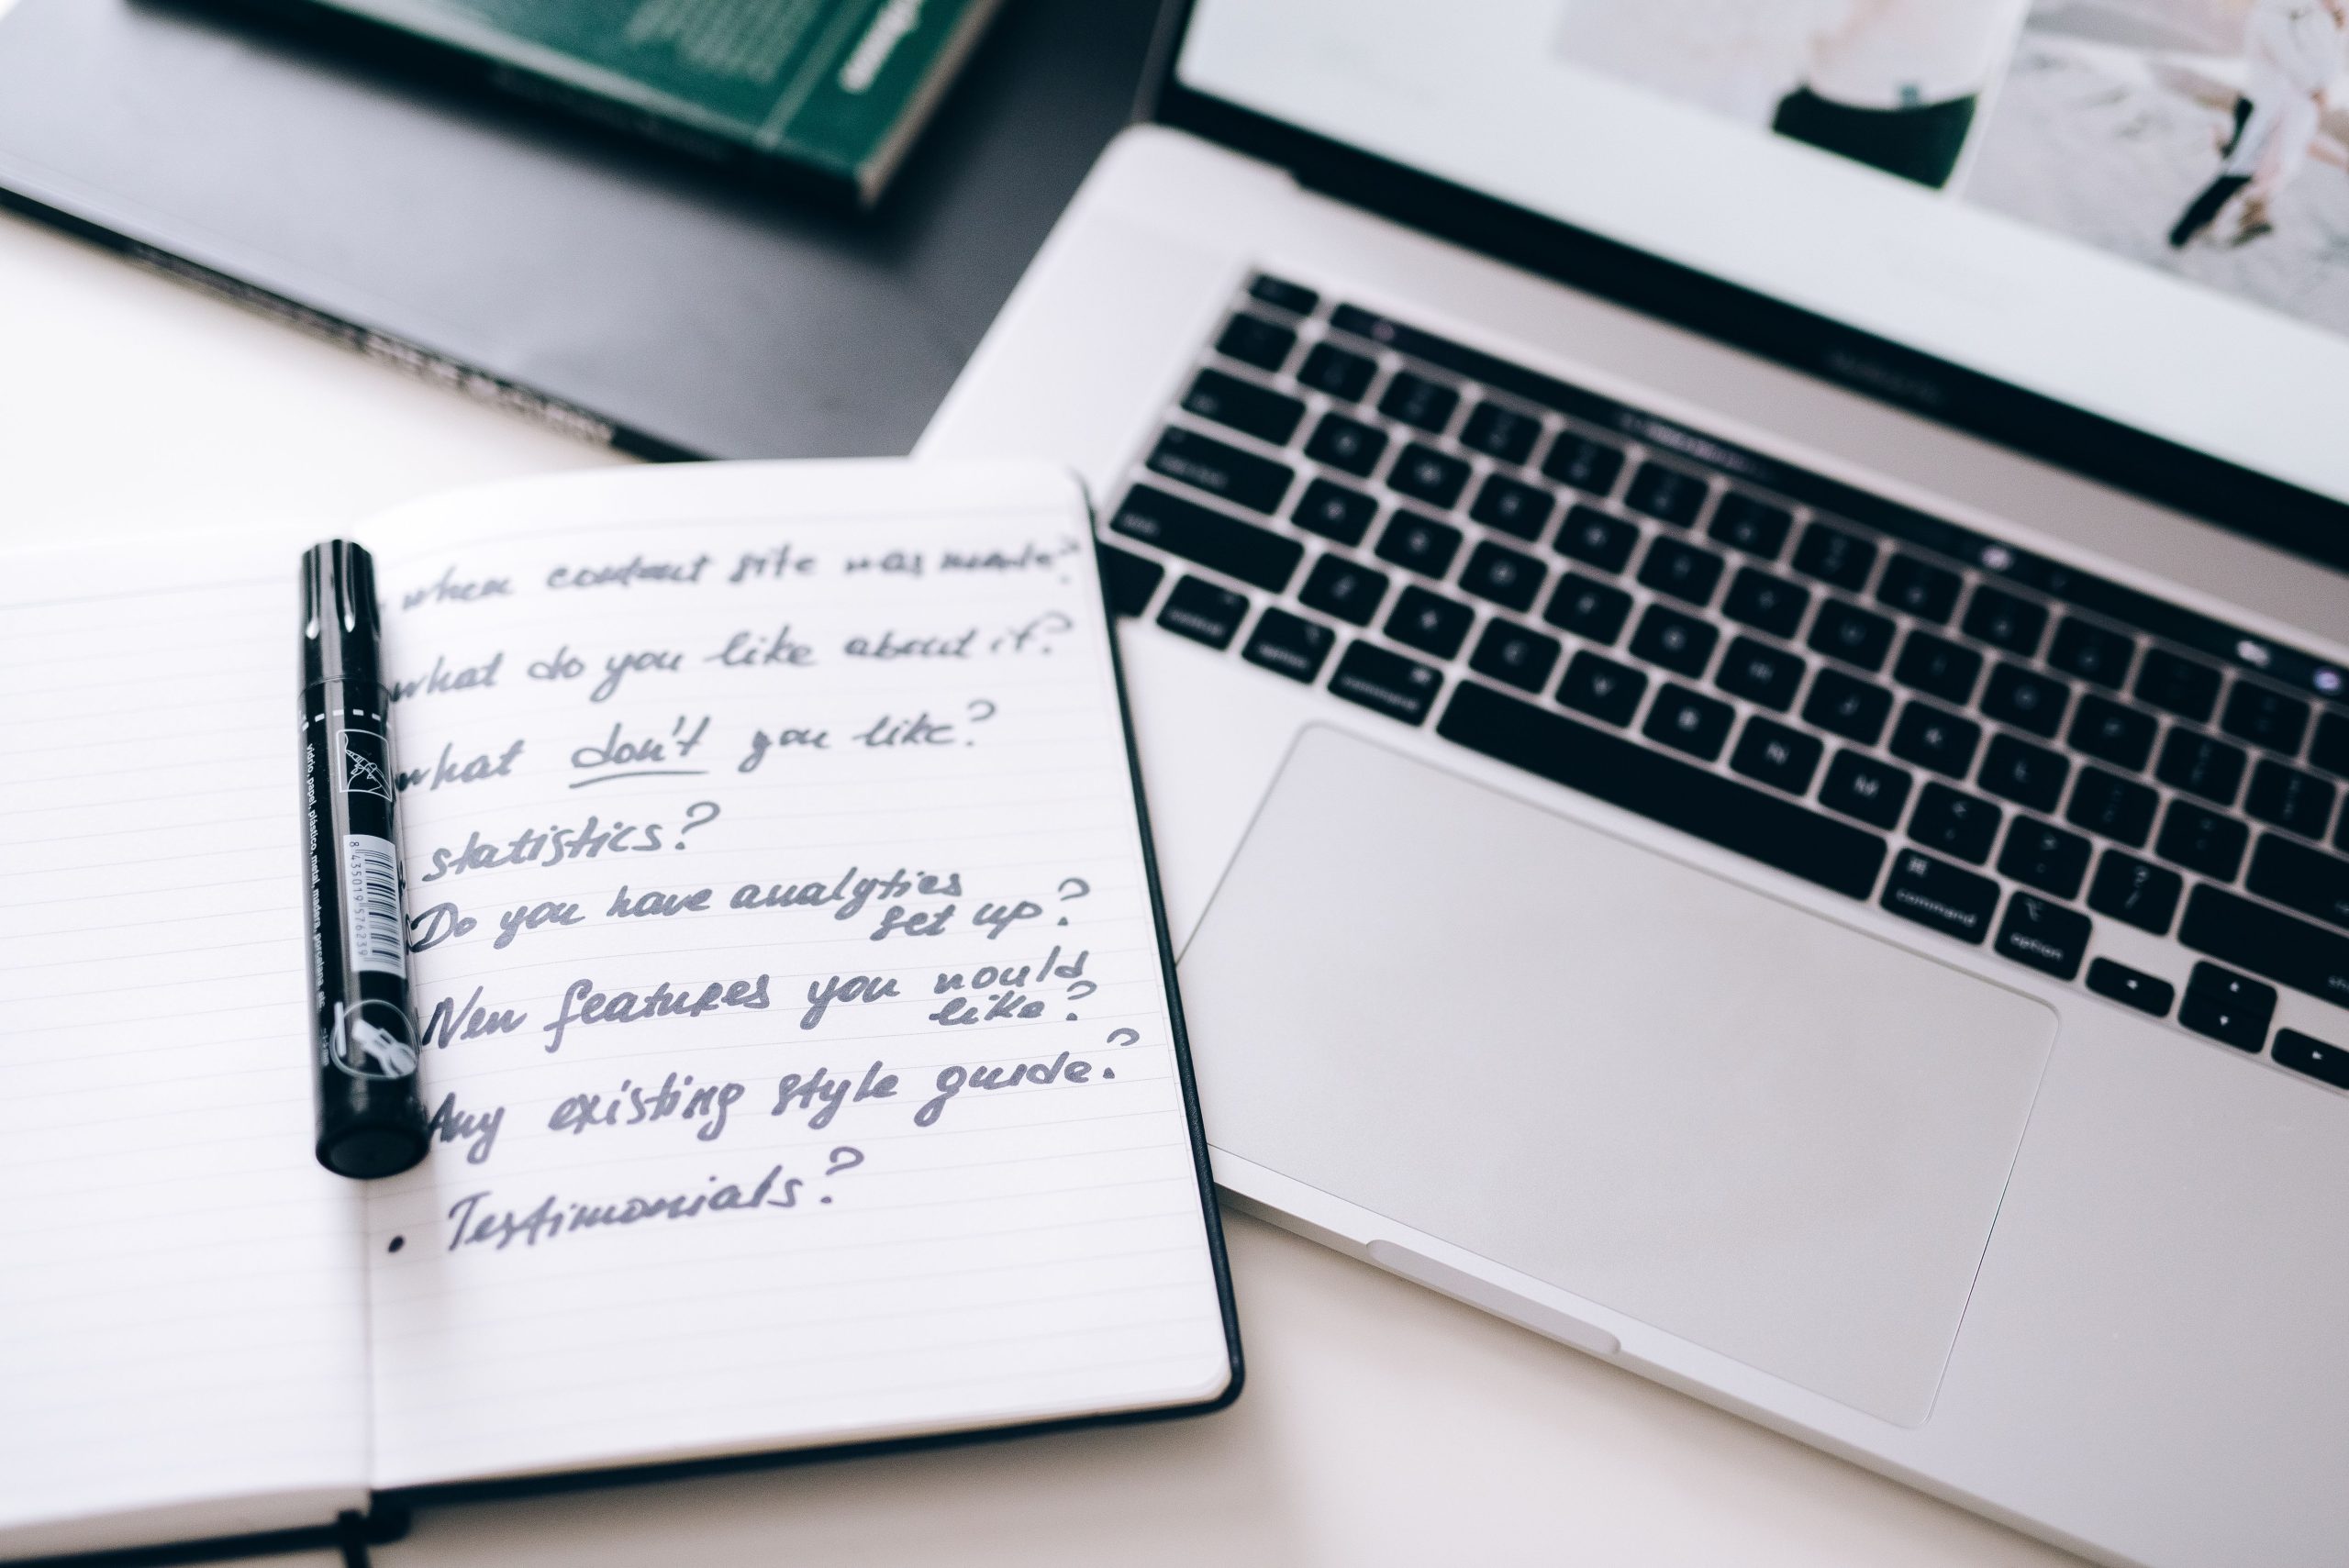 when content site was made?
what do you like about it?
what don't you like?
statistics?
Do you have analytics
set up?
New features you would
like?
Any existing style guide?
• Testimonials?
vidrio, papel, plástico, metal, madera, porcelana, etc
8 435019 576239
control
option
command
Z
X
C
V
B
N
M
command
option